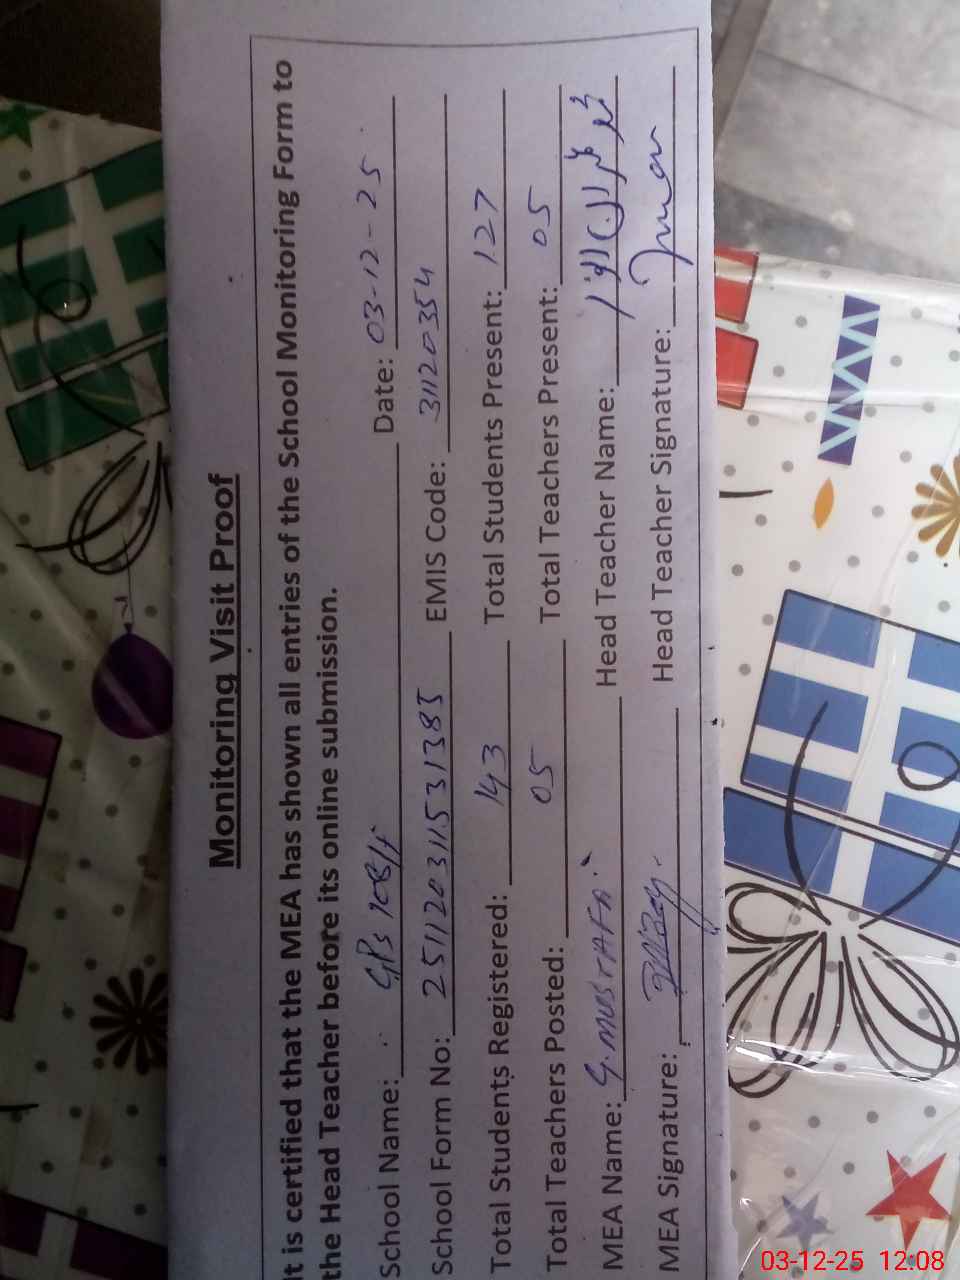 Monitoring Visit Proof
It is certified that the MEA has shown all entries of the School Monitoring Form to
the Head Teacher before its online submission.
School Name: GPS 108/F Date: 03-12-25
School Form No: 251120311531385 EMIS Code: 31120354
Total Students Registered: 143 Total Students Present: 127
Total Teachers Posted: 05 Total Teachers Present: 05
MEA Name: G. MUSTAFA Head Teacher Name:
MEA Signature: Head Teacher Signature:
03-12-25 12:08